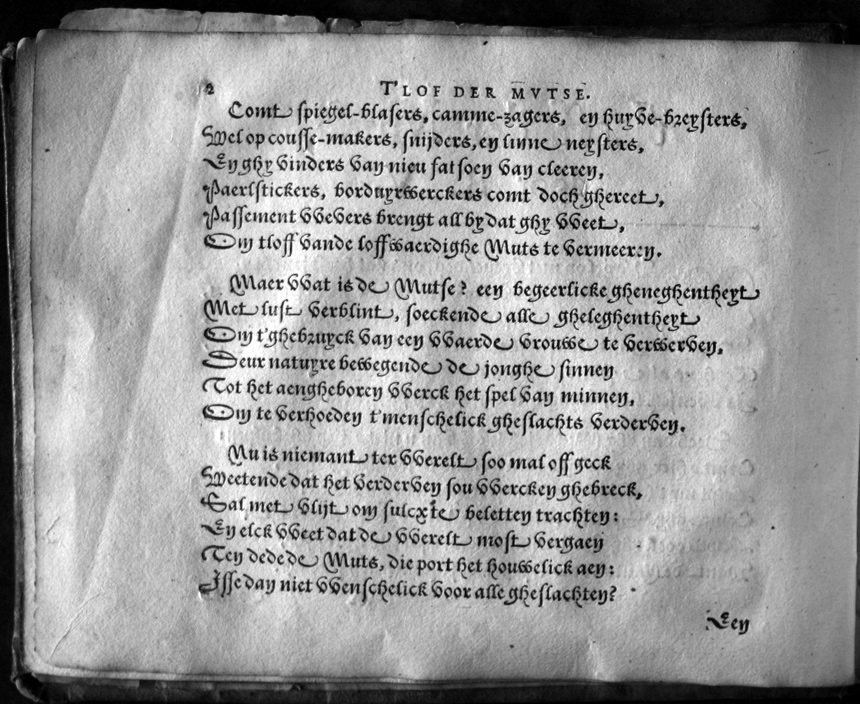 2 T'LOF DER MVTSE.
Comt spiegel-blasers, camme-zagers, en huyve-breysters,
Wel op cousse-makers, snijders, en linne neysters,
En ghy vinders van nieu fatsoen van cleeren,
Paerlstickers, borduyrwerckers comt doch ghereet,
Passement VVevers brengt all by dat ghy VVeet,
Om tloff vande loffwaerdighe Muts te vermeeren.
Maer VVat is de Mutse? een begeerlicke gheneghentheyt
Met lust verblint, soeckende alle gheleghentheyt
Om t'ghebruyck van een VVaerde vrouwe te verwerven,
Deur natuyre bewegende de jonghe sinnen
Tot het aengheboren VVerck het spel van minnen,
Om te verhoeden t'menschelick gheslachts verderven.
Nu is niemant ter VVerelt soo mal off geck
Weetende dat het verderven sou VVercken ghebreck,
Sal met vlijt om sulcx te beletten trachten:
En elck VVeet dat de VVerelt most vergaen
Ten dede de Muts, die port het houwelick aen:
Isse dan niet VVenschelick voor alle gheslachten?
Een